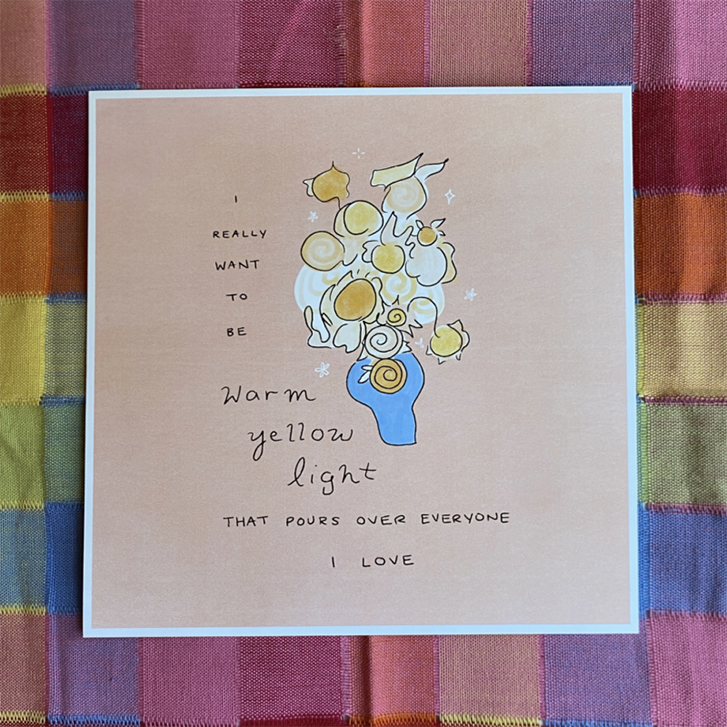 I
REALLY
WANT
TO
BE
Warm
yellow
light
THAT POURS OVER EVERYONE
I LOVE